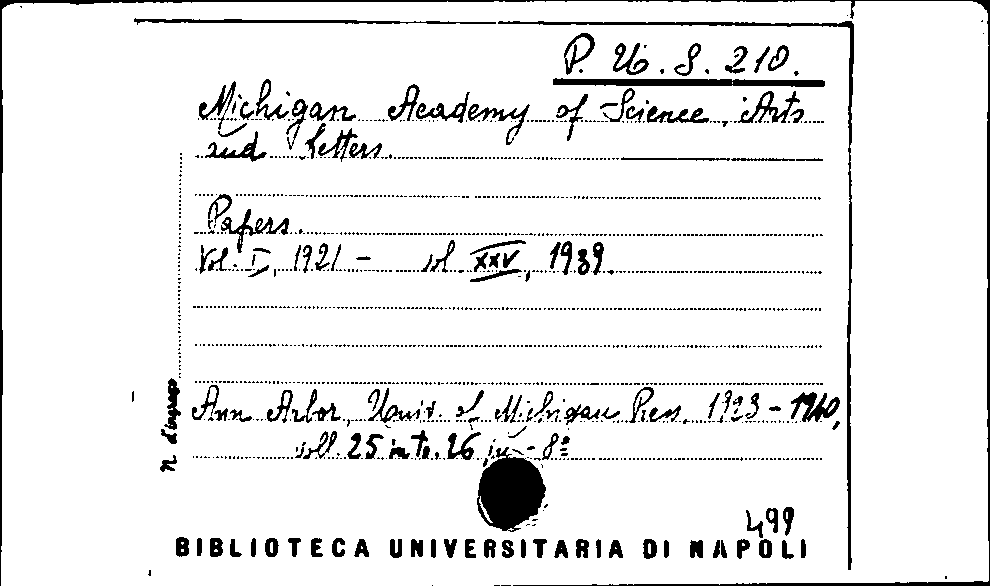 P. U. S. 210.
Michigan Academy of Science, Arts
and Letters.
Papers.
Vol. I, 1921 - vol. XXV, 1939.
Ann Arbor, Univ. of Michigan Press, 1923 - 1940,
voll. 25 in to. 26 in - 8º
N. d'ingresso
499
BIBLIOTECA UNIVERSITARIA DI NAPOLI